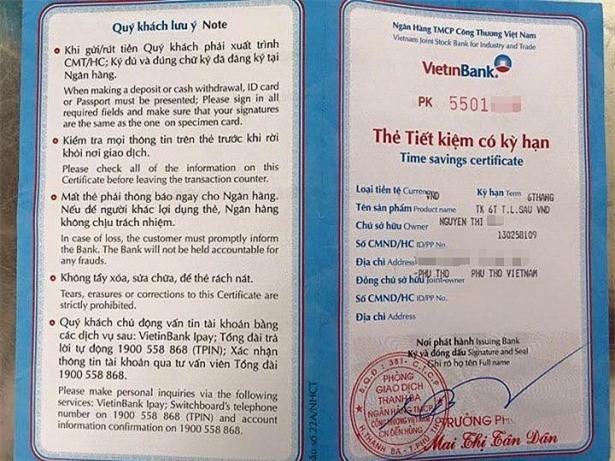 Quý khách lưu ý Note
Khi gửi/rút tiền Quý khách phải xuất trình
CMT/HC; Ký đủ và đúng chữ ký đã đăng ký tại
Ngân hàng.
When making a deposit or cash withdrawal, ID card
or Passport must be presented; Please sign in all
required fields and make sure that your signatures
are the same as the one on specimen card.
Kiểm tra mọi thông tin trên thẻ trước khi rời
khỏi nơi giao dịch.
Please check all of the information on this
Certificate before leaving the transaction counter.
Mất thẻ phải thông báo ngay cho Ngân hàng.
Nếu để người khác lợi dụng thẻ, Ngân hàng
không chịu trách nhiệm.
In case of loss, the customer must promptly inform
the Bank. The Bank will not be held accountable for
any frauds.
Không tẩy xóa, sửa chữa, để thẻ rách nát.
Tears, erasures or corrections to this Certificate are
strictly prohibited.
Quý khách chủ động vấn tin tài khoản bằng
các dịch vụ sau: VietinBank Ipay; Tổng đài trả
lời tự động 1900 558 868 (TPIN); Xác nhận
thông tin tài khoản qua tư vấn viên Tổng đài
1900 558 868.
Please make personal inquiries via the following
services: VietinBank Ipay; Switchboard's telephone
number on 1900 558 868 (TPIN) and account
information confirmation on 1900 558 868.
22A/NHCT
Ngân Hàng TMCP Công Thương Việt Nam
Vietnam Joint Stock Bank for Industry and Trade
VietinBank
PK 5501
Thẻ Tiết kiệm có kỳ hạn
Time savings certificate
Loại tiền tệ Currency VND Kỳ hạn Term 6THANG
Tên sản phẩm Product name TK 6T T.L.SAU VND
Chủ sở hữu Owner NGUYEN THI
Số CMND/HC ID/PP No. 130258109
Địa chỉ Address
-PHU THO PHU THO VIETNAM
Đồng chủ sở hữu Joint-owner
Số CMND/HC ID/PP No.
Địa chỉ Address
Nơi phát hành Issuing Bank
Ký và đóng dấu Signature and Seal
Ghi rõ họ tên Full name
PHÒNG
GIAO DỊCH
THANH BA
NGÂN HÀNG TMCP
CÔNG THƯƠNG VIỆT NAM
CN ĐỀN HÙNG
H.THANH BA - T.PHÚ THỌ
TRƯỞNG PH
Mai Thị Tân Dân